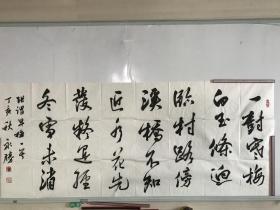 一樹寒梅
白玉條迥
臨村路傍
溪橋不知
近水花先
發疑是經
冬雪未消
張謂早梅一首
丁亥秋